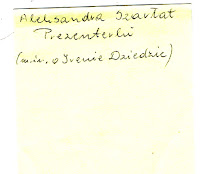 Aleksandra Szarłat
Prezenterki
(m.in. o Irenie Dziedzic)